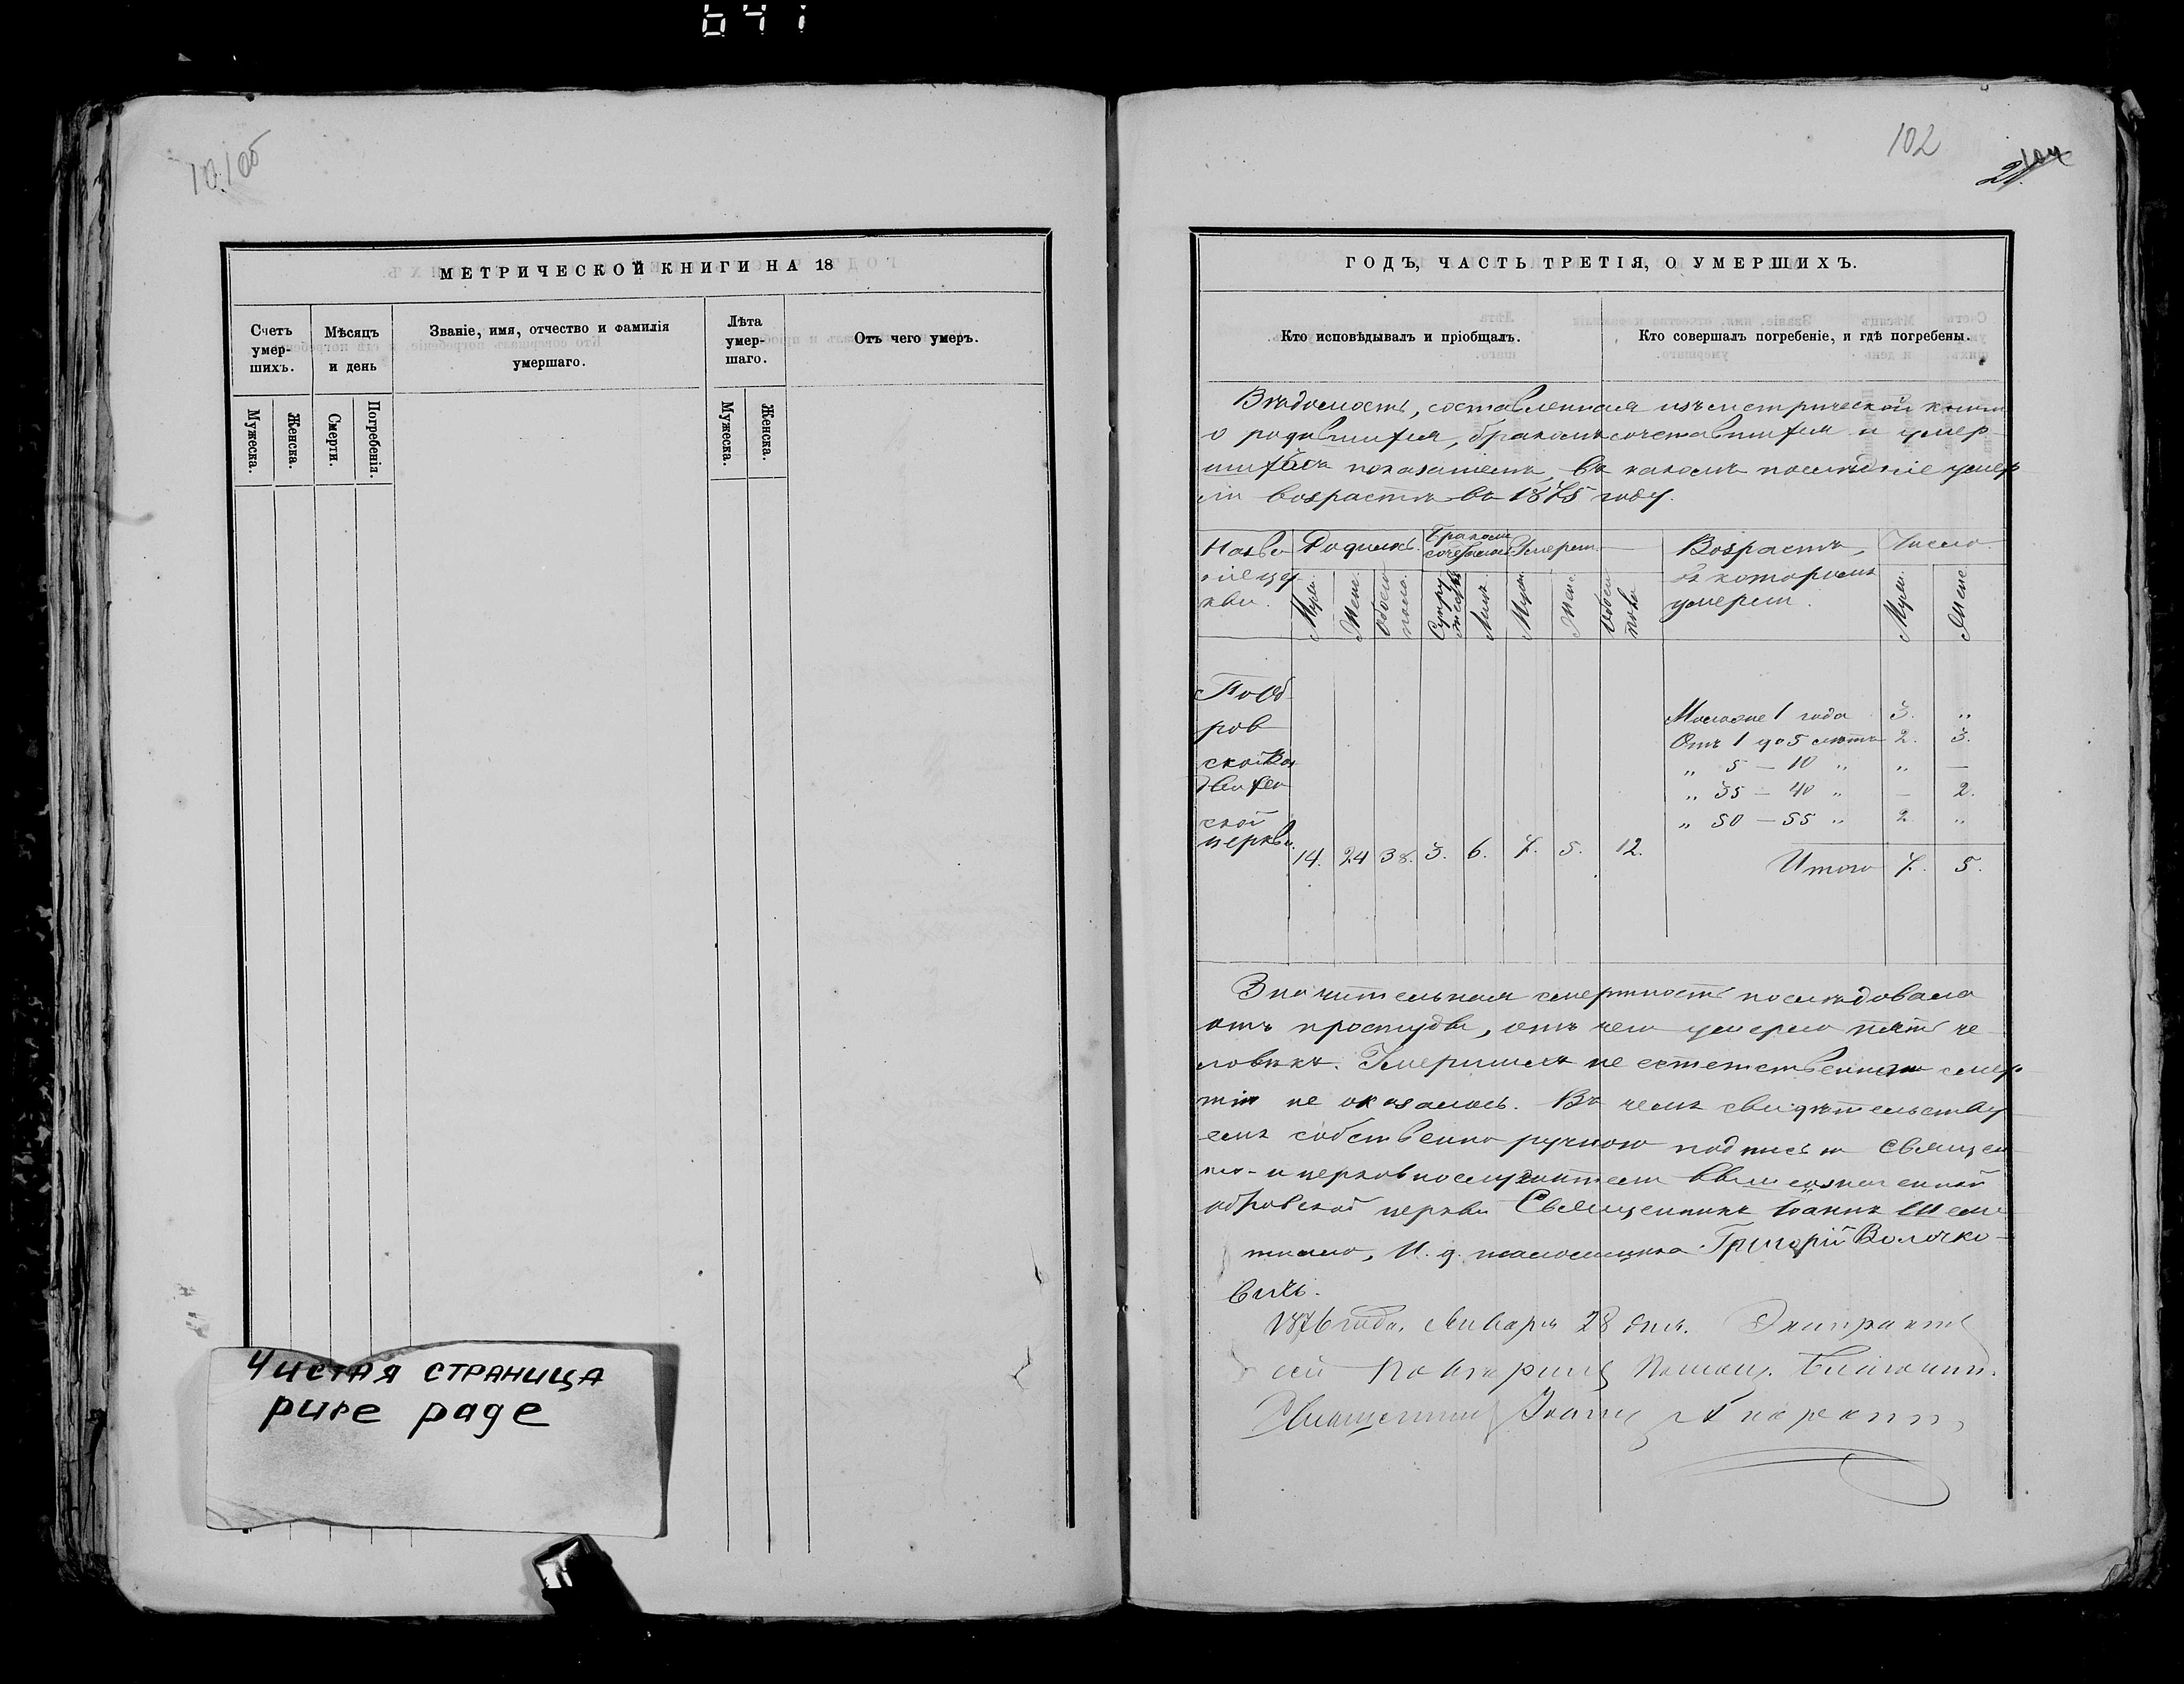 102
МЕТРИЧЕСКОЙ КНИГИ НА 18
Счетъ умер-шихъ.
Мѣсяцъ и день
Званіе, имя, отчество и фамилія умершаго.
Лѣта умер-шаго.
Отъ чего умеръ.
Мужеска.
Женска.
Смерти.
Погребенія.
Мужеска.
Женска.
Чистая страница
pure page
ГОДЪ, ЧАСТЬ ТРЕТІЯ, О УМЕРШИХЪ.
Кто исповѣдывалъ и пріобщалъ.
Кто совершалъ погребеніе, и гдѣ погребены.
Вѣдомость, составленная изъ метрической книги
о родившихся, бракомъ сочетавшихся и умер-
шихъ съ показаніемъ, въ какомъ послѣдніе умер
ли возрастѣ въ 1875 году.
Назва
ніе цер
кви.
Родилось.
Умерли.
Возрастъ,
въ которомъ
умерли.
Число.
Муж.
Жен.
Обоего пола.
Муж.
Жен.
Обоего пола
Муж.
Жен.
ров
ской
ской
церкви.
14. 24 38. 3. 6. 7. 5. 12.
Моложе 1 года 3. „
Отъ 1 до 5 лѣтъ 2. 3.
„ 5 — 10 „ „ —
„ 35 — 40 „ — 2.
„ 50 — 55 „ 2 „
Итого 7. 5.
Значительная смертность послѣдовала
отъ простуды, отъ чего умерло пять че
ловѣкъ. Умершихъ не естественною смер
тію не оказалось. Въ чемъ свидѣтельству
емъ собственно ручною подписью священ
но-и церковнослужители вышеозначенной
церкви Священникъ Іоаннъ
И. д. псаломщика Григорій Волочко-
вичъ.
1876 года, Января 28 дня.
сей повѣрилъ
Священникъ